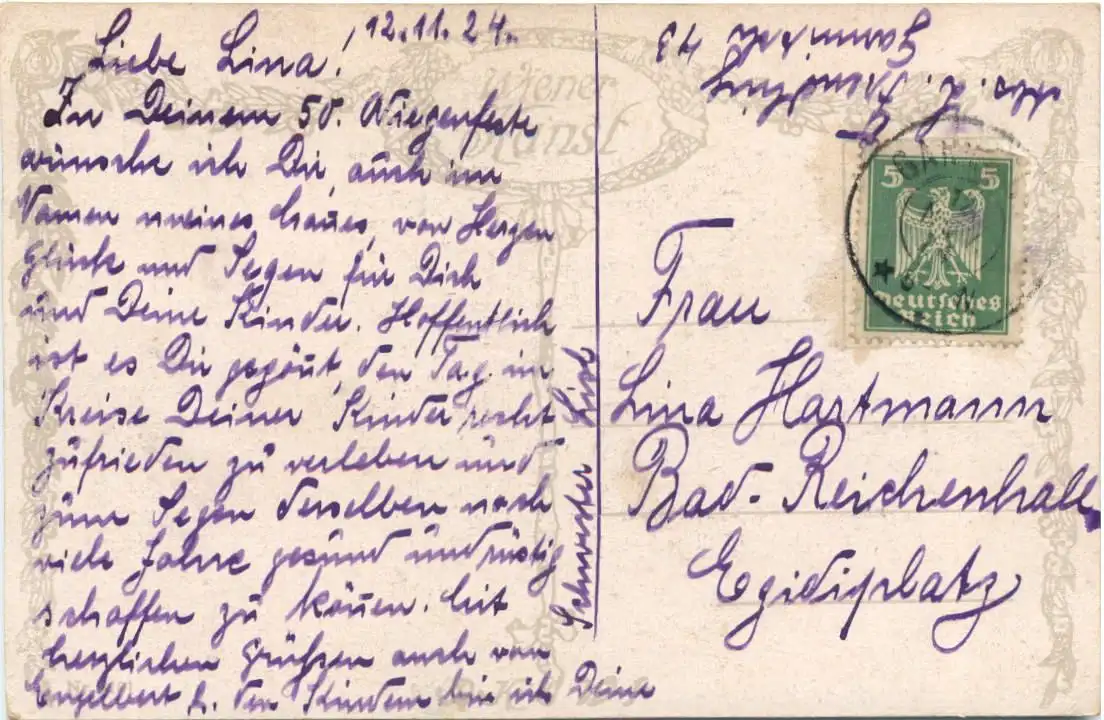 12.11.24.
Liebe Lina!
Zu Deinem 50. Wiegenfeste
wünsche ich Dir, auch im
Namen meines Hauses, von Herzen
Glück und Segen für Dich
und Deine Kinder. Hoffentlich
ist es Dir gegön̄t, den Tag im
Kreise Deiner Kinder recht
zufrieden zu verleben und
zum Segen derselben noch
viele Jahre gesund und rüstig
schaffen zu kön̄en. Mit
herzlichen Grüßen auch von
Engelbert &. den Kindern bin ich Deine
Schwester
Wiener
Kunst
Abs. L.
43
5 5
Deutsches
Reich
Frau
Lina Hartmann
Bad-Reichenhall
Egidiplatz